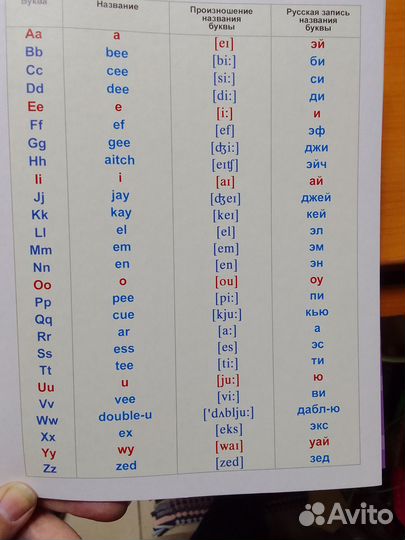 Буква Название Произношение названия буквы Русская запись названия буквы
Aa a [eɪ] эй
Bb bee [bi:] би
Cc cee [si:] си
Dd dee [di:] ди
Ee e [i:] и
Ff ef [ef] эф
Gg gee [ʤi:] джи
Hh aitch [eɪʧ] эйч
Ii i [aɪ] ай
Jj jay [ʤeɪ] джей
Kk kay [keɪ] кей
Ll el [el] эл
Mm em [em] эм
Nn en [en] эн
Oo o [ou] оу
Pp pee [pi:] пи
Qq cue [kju:] кью
Rr ar [a:] а
Ss ess [es] эс
Tt tee [ti:] ти
Uu u [ju:] ю
Vv vee [vi:] ви
Ww double-u ['dʌblju:] дабл-ю
Xx ex [eks] экс
Yy wy [waɪ] уай
Zz zed [zed] зед
Avito